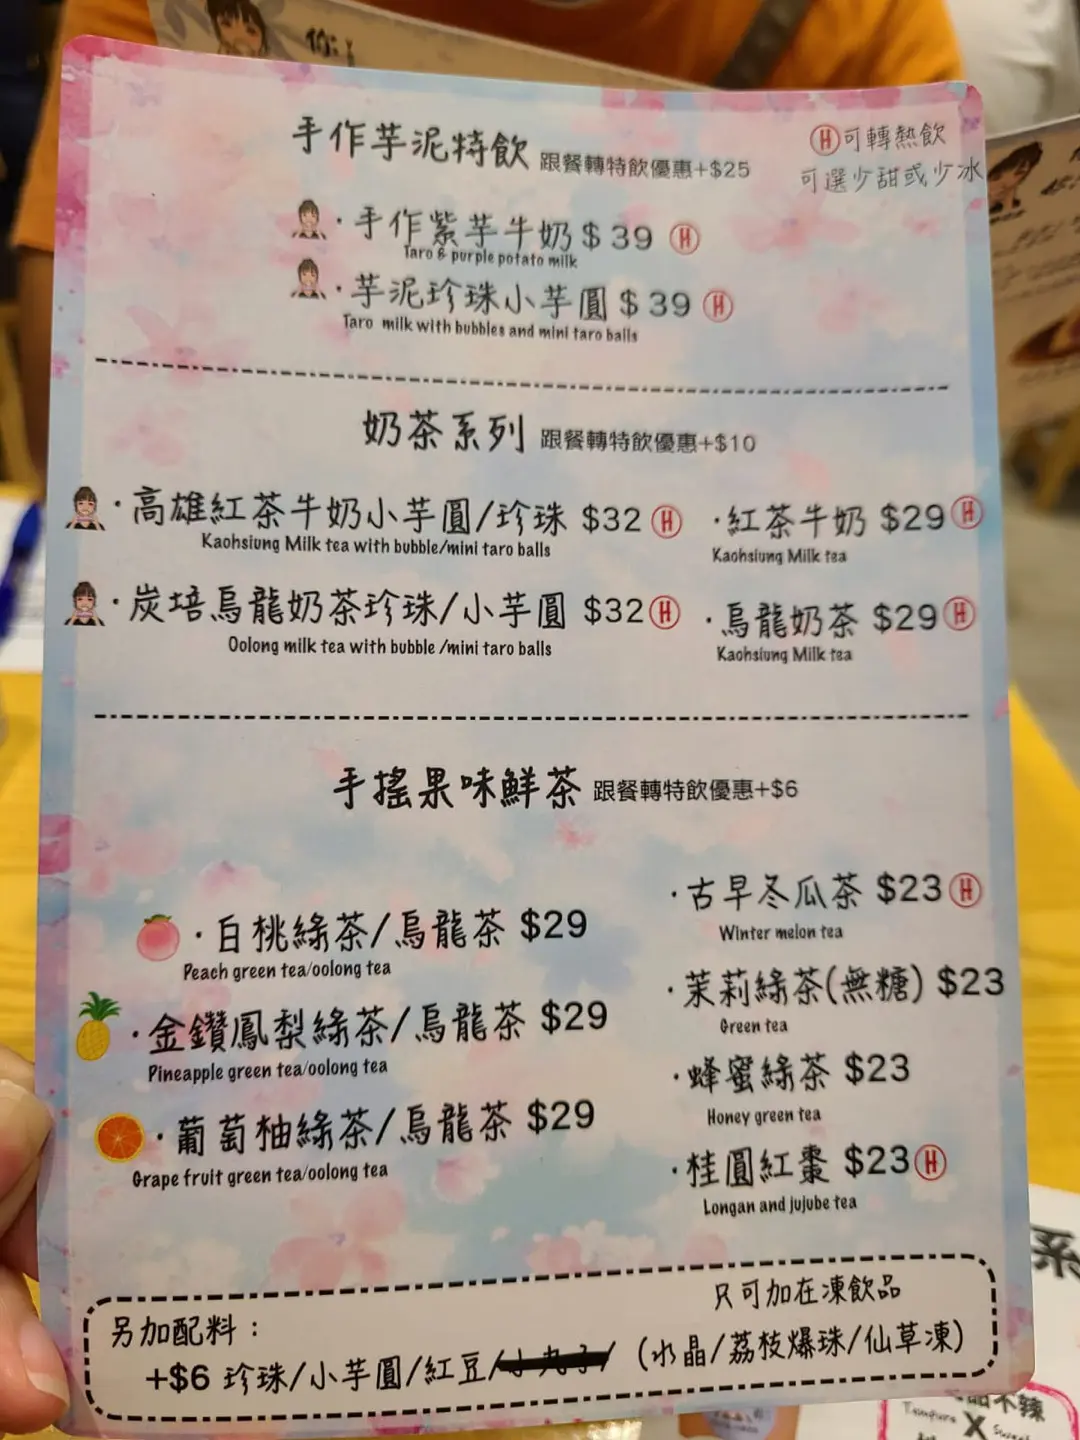 你
手作芋泥特飲 跟餐轉特飲優惠+$25
Ⓗ可轉熱飲
可選少甜或少冰
·手作紫芋牛奶$39 Ⓗ
Taro & purple potato milk
·芋泥珍珠小芋圓$39 Ⓗ
Taro milk with bubbles and mini taro balls
奶茶系列 跟餐轉特飲優惠+$10
·高雄紅茶牛奶小芋圓/珍珠 $32 Ⓗ
Kaohsiung Milk tea with bubble/mini taro balls
·紅茶牛奶 $29 Ⓗ
Kaohsiung Milk tea
·炭培烏龍奶茶珍珠/小芋圓 $32 Ⓗ
Oolong milk tea with bubble /mini taro balls
·烏龍奶茶 $29 Ⓗ
Kaohsiung Milk tea
手搖果味鮮茶 跟餐轉特飲優惠+$6
·白桃綠茶/烏龍茶 $29
Peach green tea/oolong tea
·金鑽鳳梨綠茶/烏龍茶 $29
Pineapple green tea/oolong tea
·葡萄柚綠茶/烏龍茶 $29
Grape fruit green tea/oolong tea
·古早冬瓜茶 $23 Ⓗ
Winter melon tea
·茉莉綠茶(無糖) $23
Green tea
·蜂蜜綠茶 $23
Honey green tea
·桂圓紅棗 $23 Ⓗ
Longan and jujube tea
另加配料：
只可加在凍飲品
+$6 珍珠/小芋圓/紅豆/小丸子/ (水晶/荔枝爆珠/仙草凍)
系
不辣
Tempura X Sweet